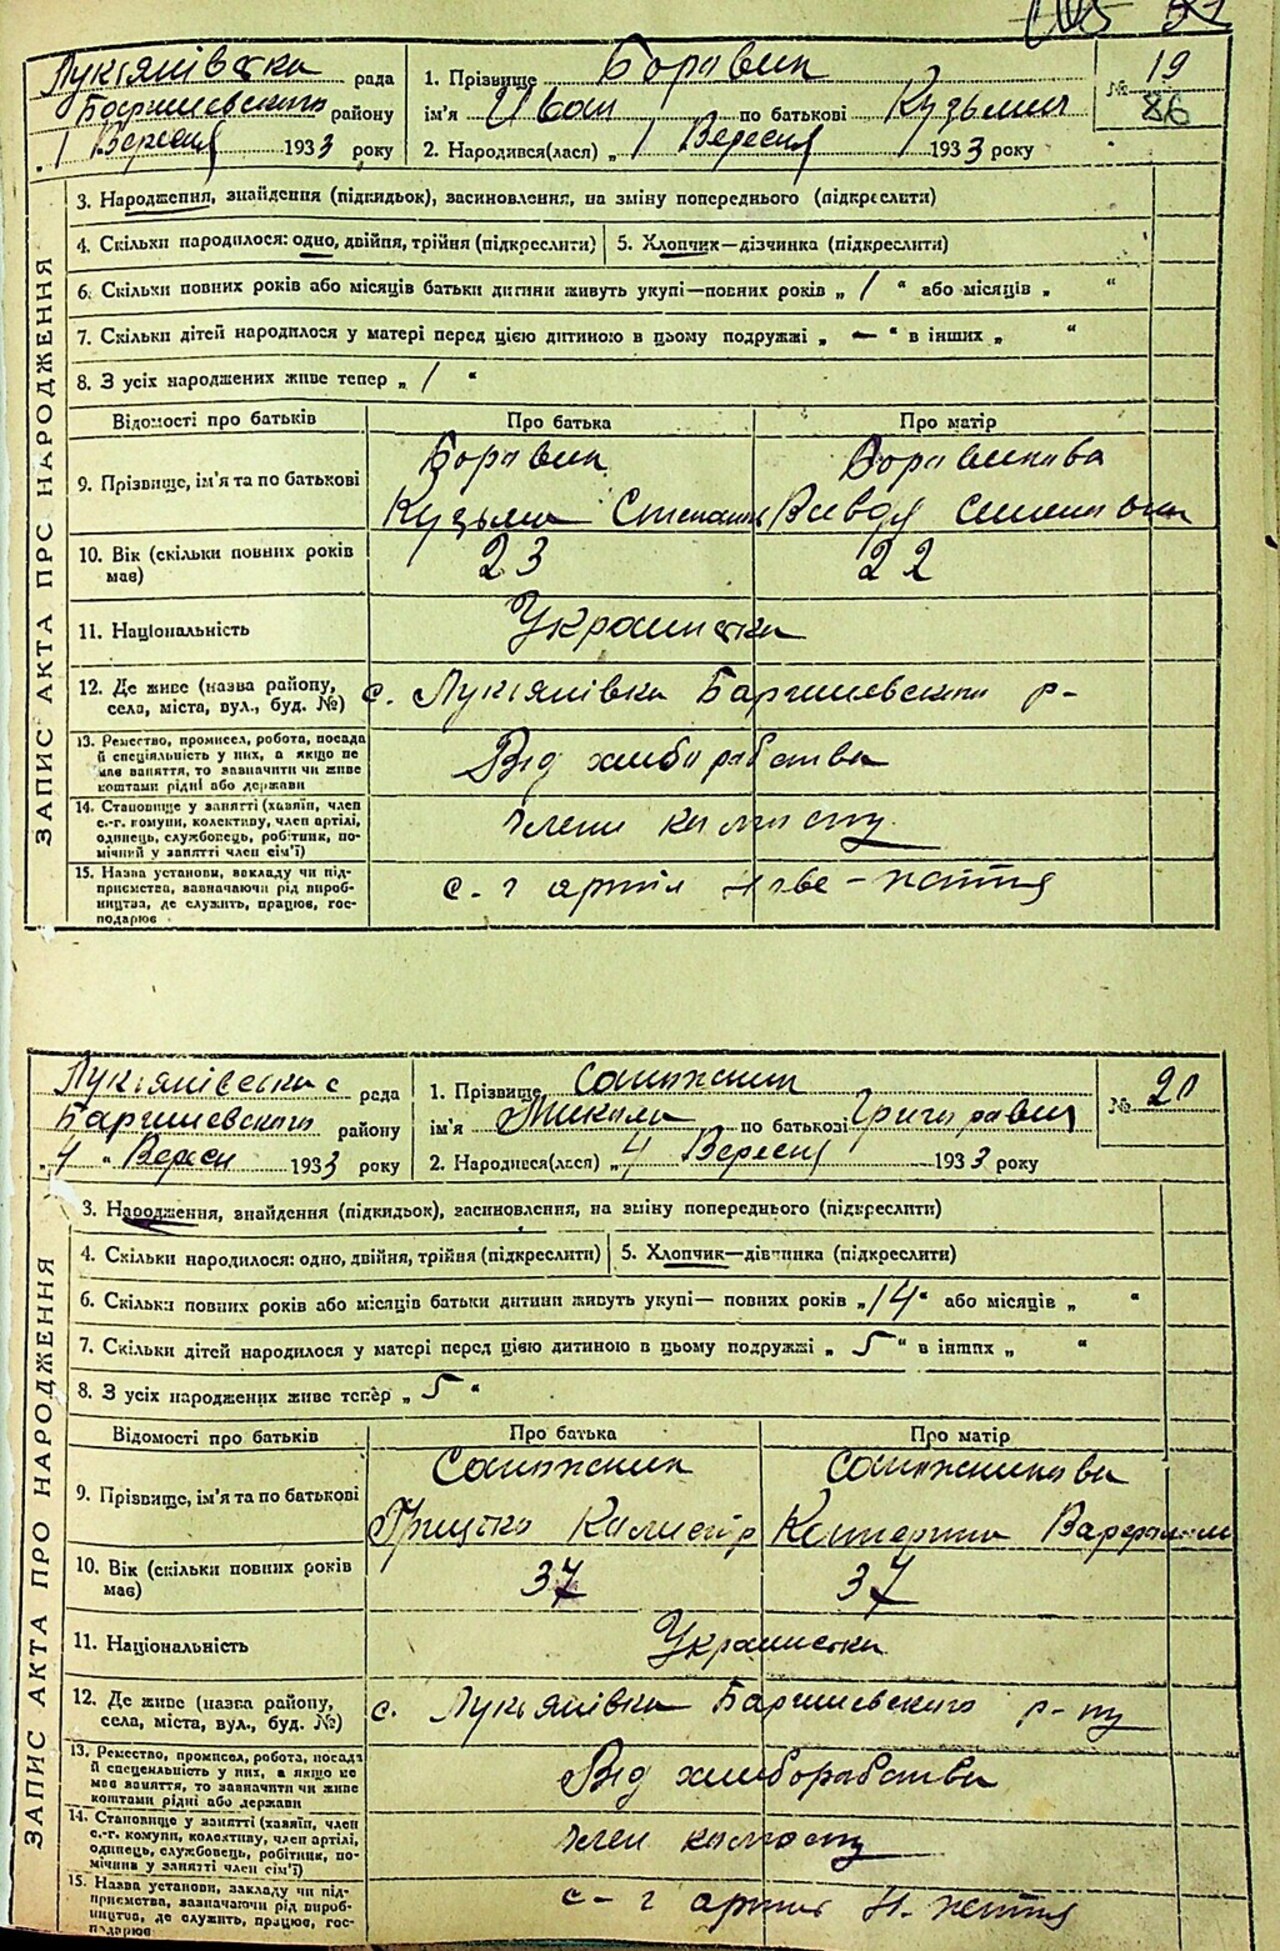 Лукіянівська рада
Баришевського району
„ 1 Вересня 1933 року
1. Прізвище Боровик
ім'я Иван по батькові Кузьмич
2. Народився(лася) „ 1 Вересня 1933 року
№ 19
86
ЗАПИС АКТА ПРО НАРОДЖЕННЯ
3. Народження, знайдення (підкидьок), засиновлення, на зміну попереднього (підкреслити)
4. Скільки народилося: одно, двійня, трійня (підкреслити) 5. Хлопчик—дівчинка (підкреслити)
6. Скільки повних років або місяців батьки дитини живуть укупі—повних років „ 1 “ або місяців „ “
7. Скільки дітей народилося у матері перед цією дитиною в цьому подружжі „ — “ в інших „ “
8. З усіх народжених живе тепер „ 1 “
Відомості про батьків Про батька Про матір
9. Прізвище, ім'я та по батькові
Боровик
Кузьма Степанов
Боровикова
10. Вік (скільки повних років
має)
23 22
11. Національність Украинська
12. Де живе (назва району,
села, міста, вул., буд. №)
с. Лукіянівка Баришевського р-
13. Ремество, промисел, робота, посада
й спеціяльність у них, а якщо не
має заняття, то зазначити чи живе
коштами рідні або держави
Від хлиборобства
14. Становище у занятті (хазяїн, член
с.-г. комуни, колективу, член артілі,
одинець, службовець, робітник, по-
мічний у занятті член сім'ї)
члени колгоспу
15. Назва установи, закладу чи під-
приємства, зазначаючи рід вироб-
ництва, де служить, працює, гос-
подарює
с-г артіл Нове-життя
Лукіянівська с рада
Баришевського району
„ 4 “ Вересн 1933 року
1. Прізвище Сапожник
ім'я Микола по батькові Григорович
2. Народився(лася) „ 4 Вересня 1933 року
№ 20
ЗАПИС АКТА ПРО НАРОДЖЕННЯ
3. Народження, знайдення (підкидьок), засиновлення, на зміну попереднього (підкреслити)
4. Скільки народилося: одно, двійня, трійня (підкреслити) 5. Хлопчик—дівчинка (підкреслити)
6. Скільки повних років або місяців батьки дитини живуть укупі— повних років „ 14 “ або місяців „ “
7. Скільки дітей народилося у матері перед цією дитиною в цьому подружжі „ 5 “ в інших „ “
8. З усіх народжених живе тепер „ 5 “
Відомості про батьків Про батька Про матір
9. Прізвище, ім'я та по батькові
Сапожник
Грицько Калистр
Сапожникова
Катерина
10. Вік (скільки повних років
має)
37 37
11. Національність Украинська
12. Де живе (назва району,
села, міста, вул., буд. №)
с. Лукьянівка Баришевського р-ну
13. Ремество, промисел, робота, посада
й спеціяльність у них, а якщо не
має заняття, то зазначити чи живе
коштами рідні або держави
Від хлиборобства
14. Становище у занятті (хазяїн, член
с.-г. комуни, колективу, член артілі,
одинець, службовець, робітник, по-
мічник у занятті член сім'ї)
член колгоспу
15. Назва установи, закладу чи під-
приємства, зазначаючи рід вироб-
ництва, де служить, працює, гос-
подарює
с-г артил Н. життя